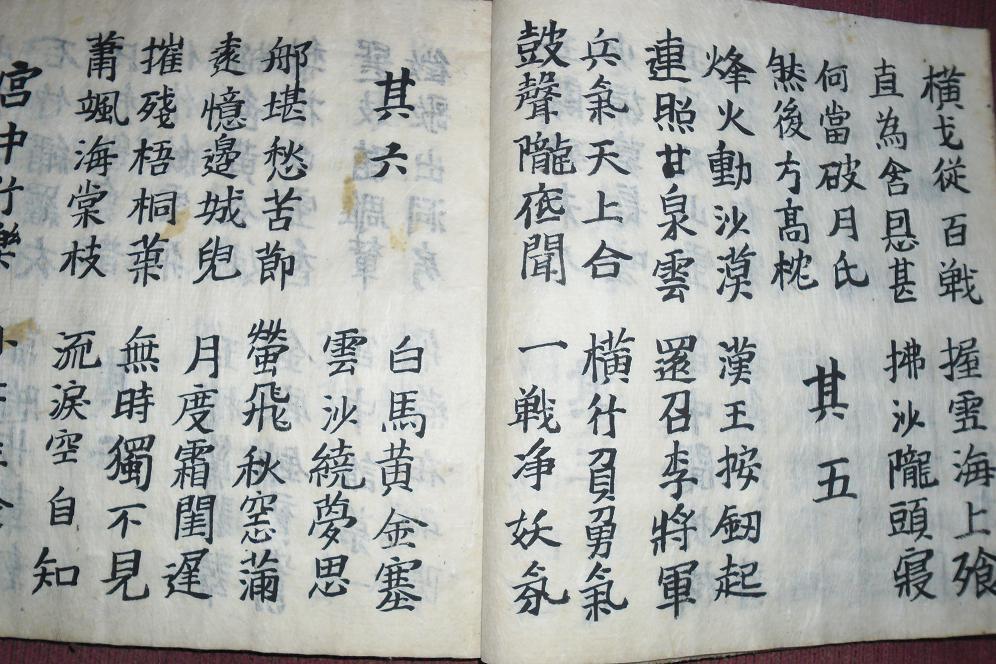 横戈從百戦
直為含恩甚
握雪海上飱
拂沙隴頭寢
何當破月氏
然後方高枕
其五
烽火動沙漠
連照甘泉雲
漢王按劒起
還召李將軍
兵氣天上合
鼓聲隴底聞
横行負勇氣
一戦净妖氛
其六
白馬黄金塞
雲沙繞夢思
那堪愁苦節
遠憶邊城兒
螢飛秋窓滿
月度霜閨遲
摧殘梧桐葉
蕭颯海棠枝
無時獨不見
流淚空自知
宮中行樂